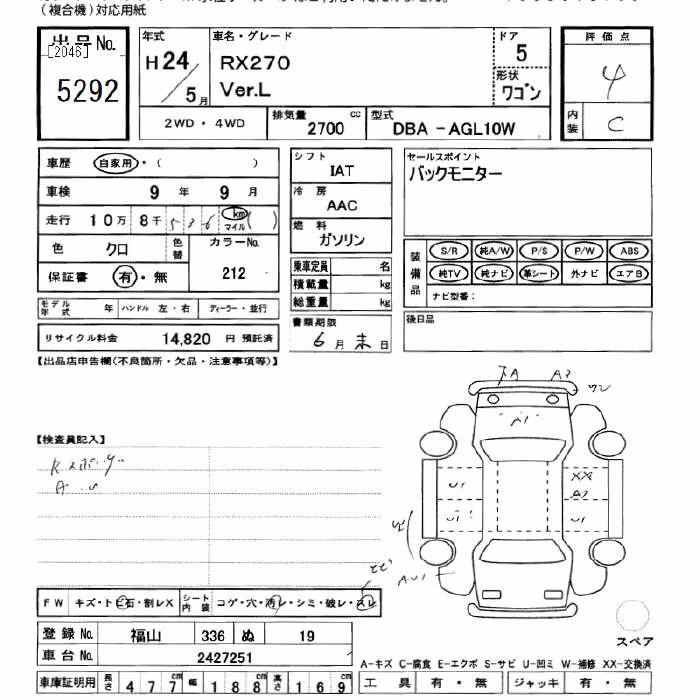 （複合機）対応用紙
出品No.
[2046]
5292
年式
H24/5月
車名・グレード
RX270
Ver.L
ドア
5
形状
ワゴン
評価点
4
内装
C
2WD・4WD
排気量 2700 cc
型式 DBA－AGL10W
車歴 自家用・（　　　）
車検 9年 9月
走行 10万 8千 536 km マイル（　）
色 クロ 色替 カラーNo.
212
保証書 有・無
モデル年式 年 ハンドル 左・右 ディーラー・並行
リサイクル料金 14,820 円 預託済
シフト
IAT
冷房
AAC
燃料
ガソリン
乗車定員 名
積載量 kg
総重量 kg
書類期限
6月末日
セールスポイント
バックモニター
装備品
S/R 純A/W P/S P/W ABS
純TV 純ナビ 革シート 外ナビ エアB
ナビ型番：
後日品
【出品店申告欄(不良箇所・欠品・注意事項等)】
【検査員記入】
A A3
A1
U1 XX
A2
U1 U1
FW キズ・トビ石・割レX シート内装 コゲ・穴・汚レ・シミ・破レ・スレ
登録No. 福山 336 ぬ 19
車台No. 2427251
車庫証明用 長さ 477cm 幅 188cm 高さ 169cm
スペア
A-キズ C-腐食 E-エクボ S-サビ U-凹ミ W-補修 XX-交換済
工具 有・無 ジャッキ 有・無